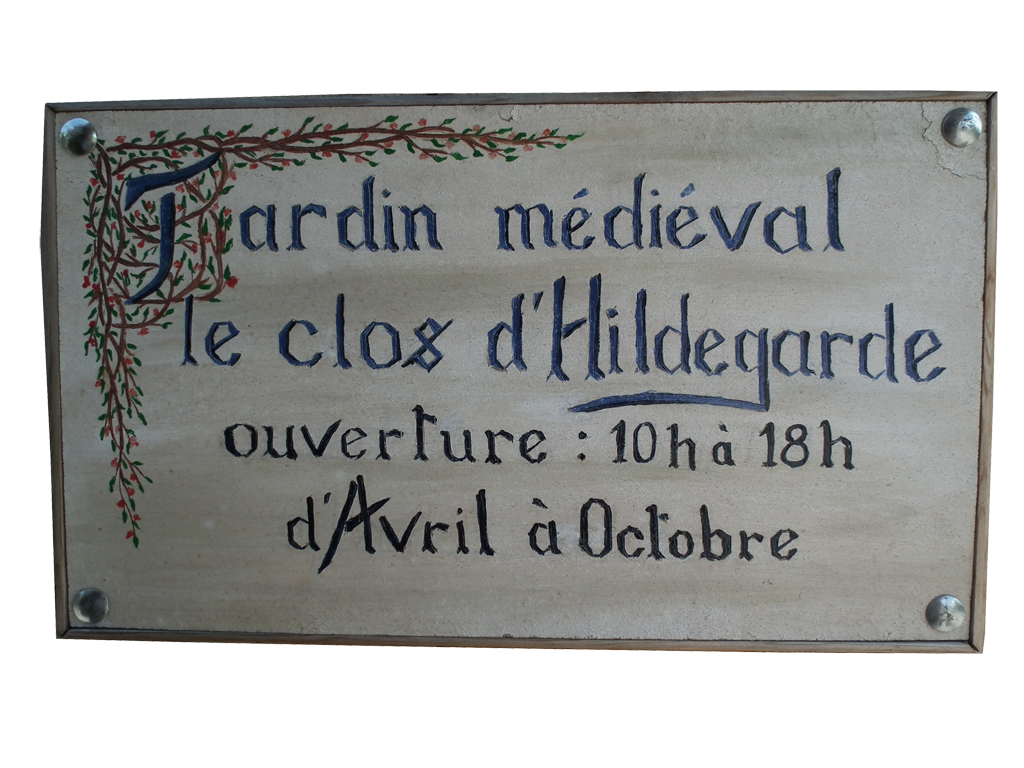 Jardin médiéval
le clos d'Hildegarde
ouverture : 10h à 18h
d'Avril à Octobre